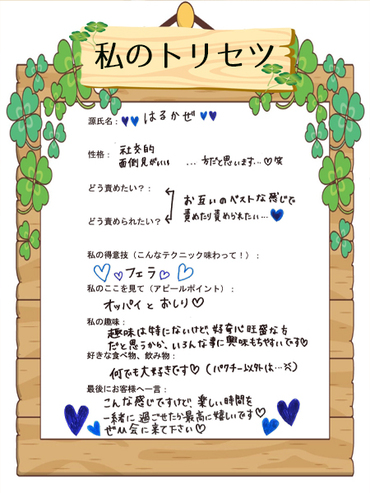 私のトリセツ
源氏名：はるかぜ
性格：社交的
面倒見がいい …方だと思います…♡笑
どう責めたい？：
お互いのベストな感じで
責めたり責められたい…
どう責められたい？
私の得意技（こんなテクニック味わって！）：
フェラ
私のここを見て（アピールポイント）：
オッパイとおしり♡
私の趣味：
趣味は特にないけど、好奇心旺盛な方
だと思うから、いろんな事に興味もちやすいです♡
好きな食べ物、飲み物：
何でも大好きです♡（パクチー以外は…×）
最後にお客様へ一言：
こんな感じですけど、楽しい時間を
一緒に過ごせたら最高に嬉しいです♡
ぜひ会に来て下さい♡